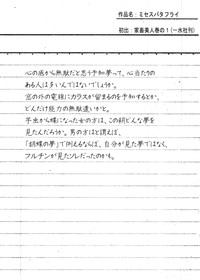 作品名：ミセスバタフライ
初出：家畜美人巻の１（一水社刊）
心の底から無駄だと思う予知夢って、心当たりの
ある人は多いんではないでしょうか。
窓の外の電線にカラスが留まるのを予知するとか、
どんだけ能力の無駄遣いかと。
芋虫から蝶になった女の方は、この朝どんな夢を
見たんだろうか。男の方はと謂えば、
「胡蝶の夢」で例えるならば、自分が見た夢ではなく、
フルチンが見たソレだったのかも。